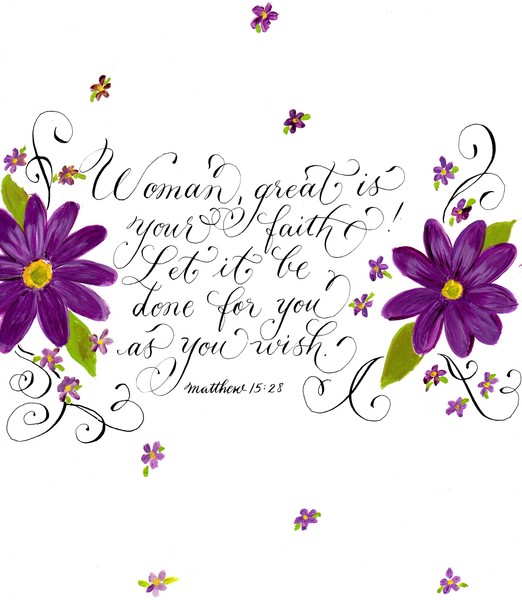 Woman, great is
your faith!
Let it be
done for you
as you wish.
matthew 15:28